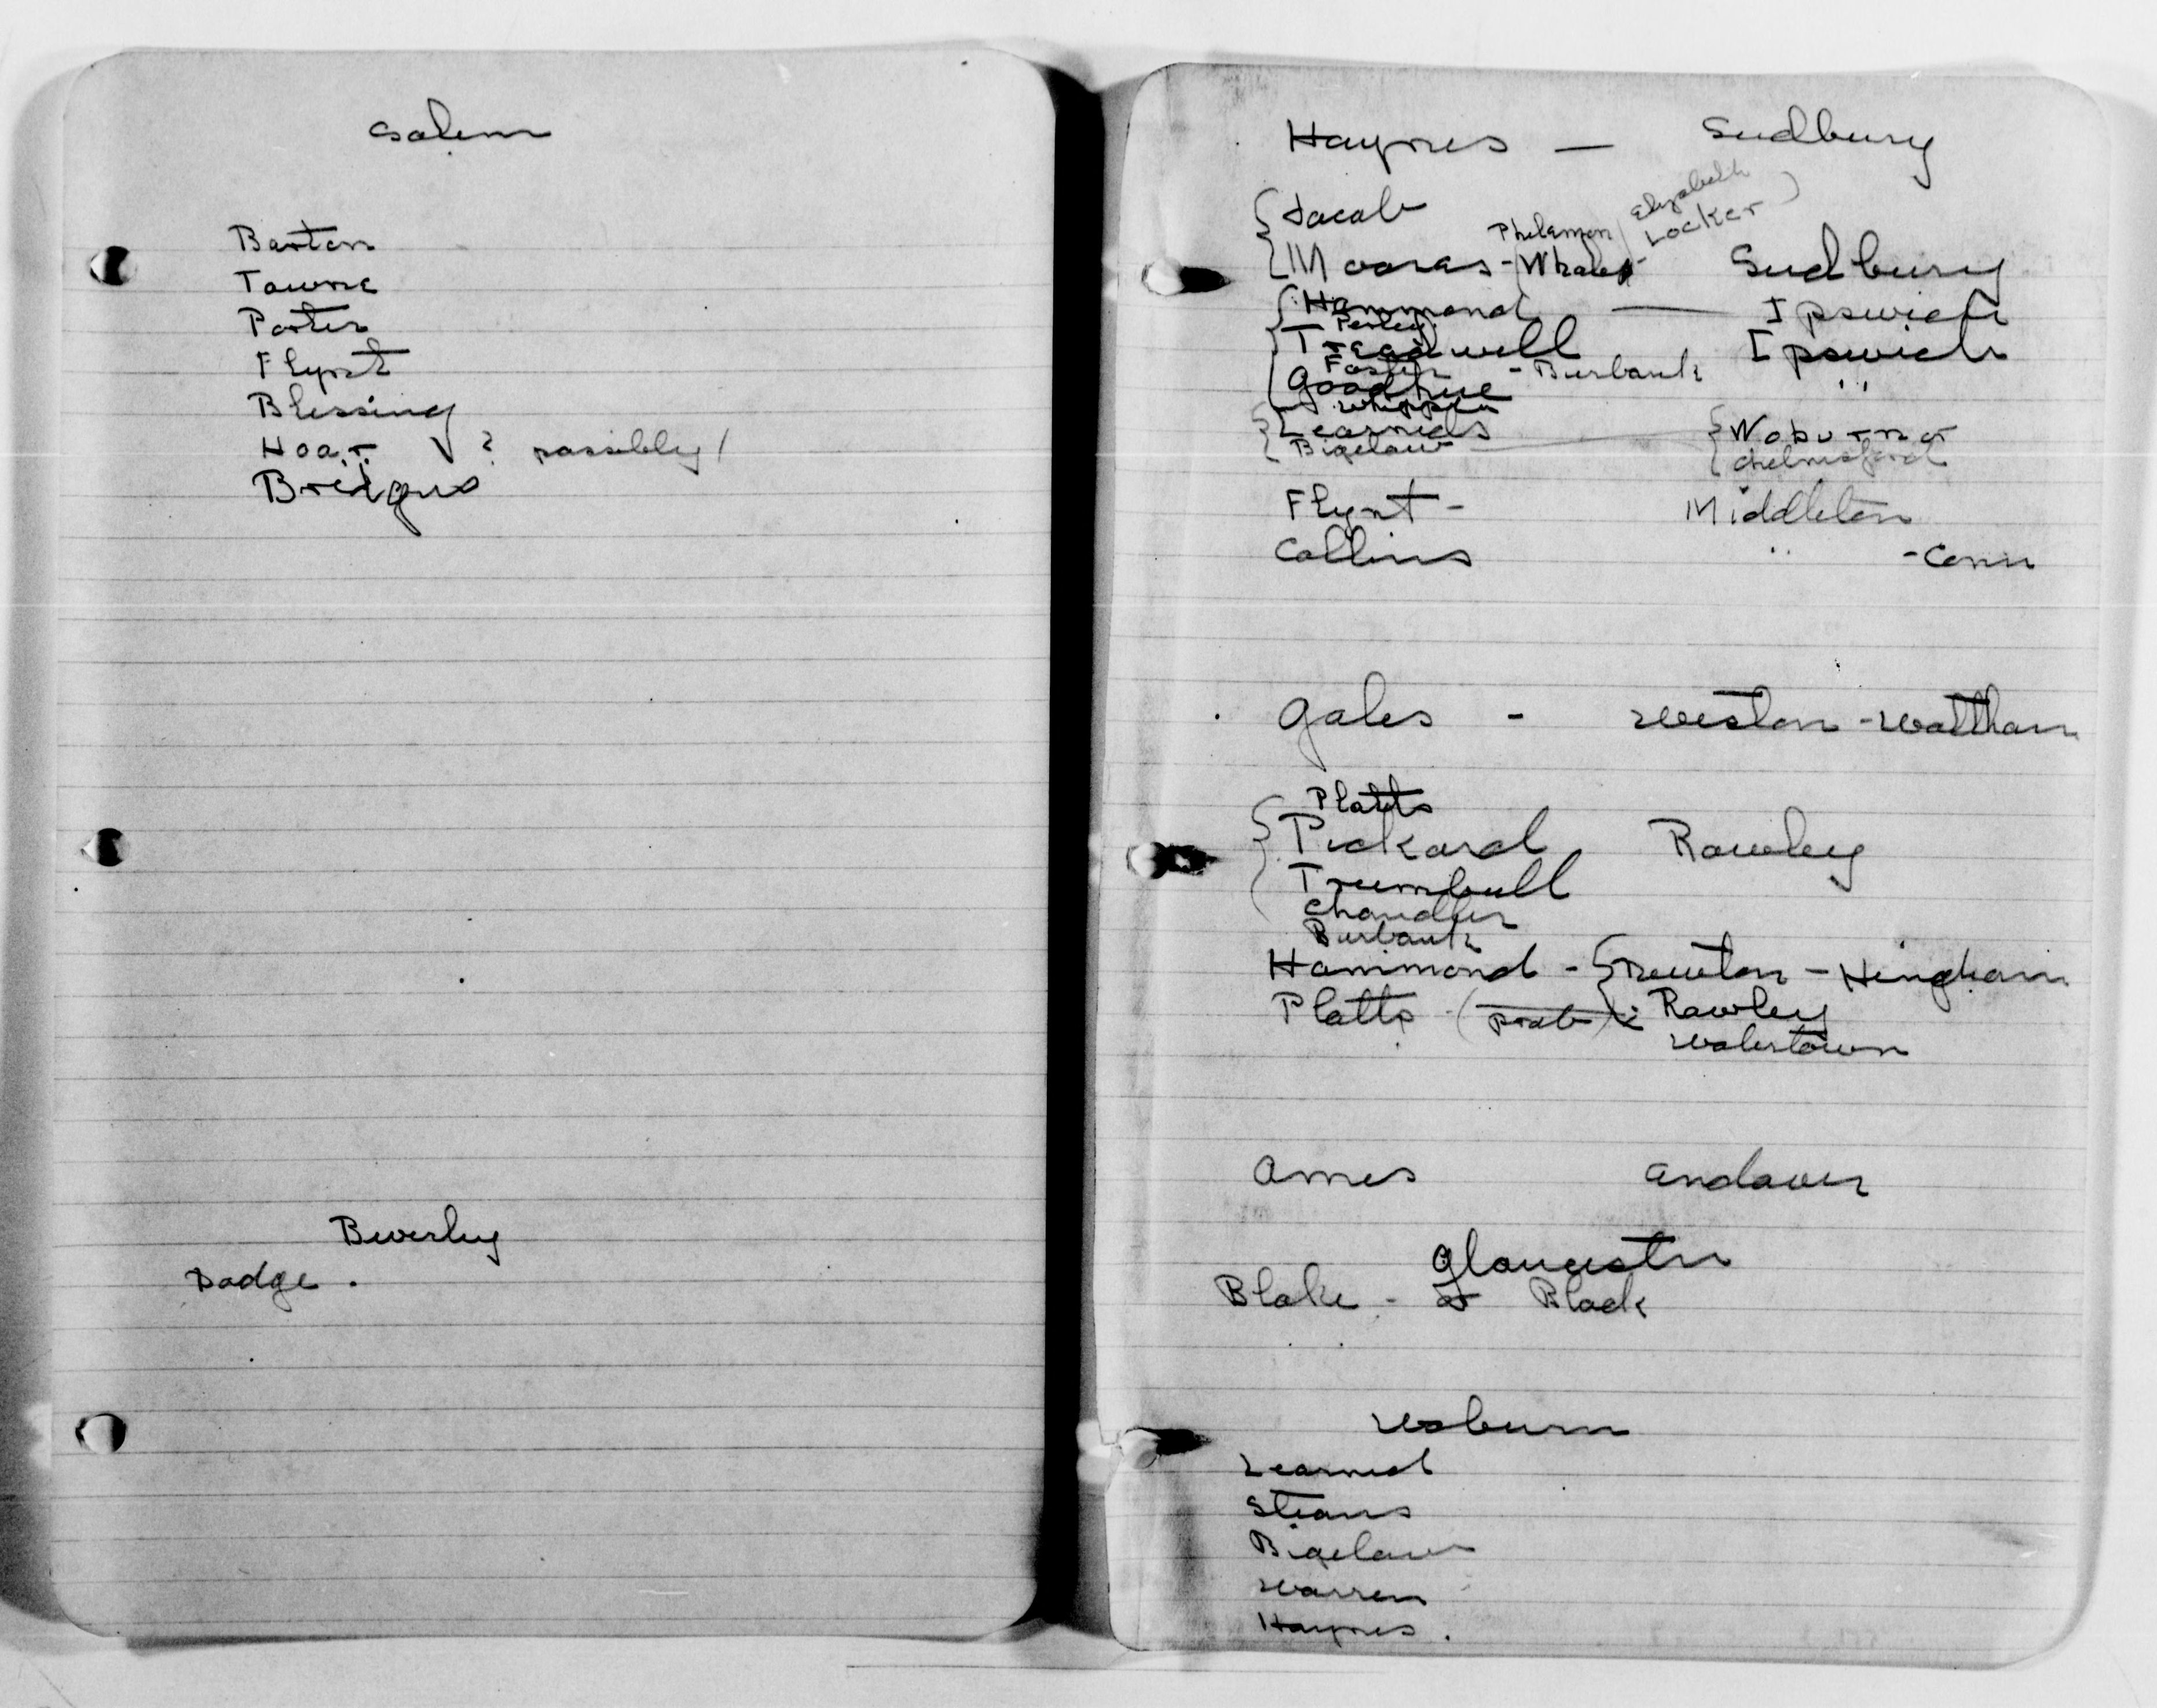 Salem
Barton
Towne
Porter
Flynt
Blessing
Hoar √ ? possibly /
Bridges
Beverley
Dodge .
Haynes — Sudbury
{ Jacob
Elizabeth
Locker )
Philemon
{ Moores - Whale Sudbury
{ Hammond — Ipswich
Perley
{ Treadwell Ipswich
Foster - Burbank
Goodhue "
Whipple
{ Learneds { Woburn or
{ Bigelow { Chelmsford
Flynt - Middleton
Collins " - Conn
Gales - Weston - Waltham
Platts
{ Pickard Rowley
Trumbull
Chandler
Burbank
Hammond - { Newton - Hingham
Platts (prob) Rowley
Watertown
Ames Andover
Gloucester
Blake - or Black
Woburn
Learned
Stearns
Bigelow
Warren
Haynes .